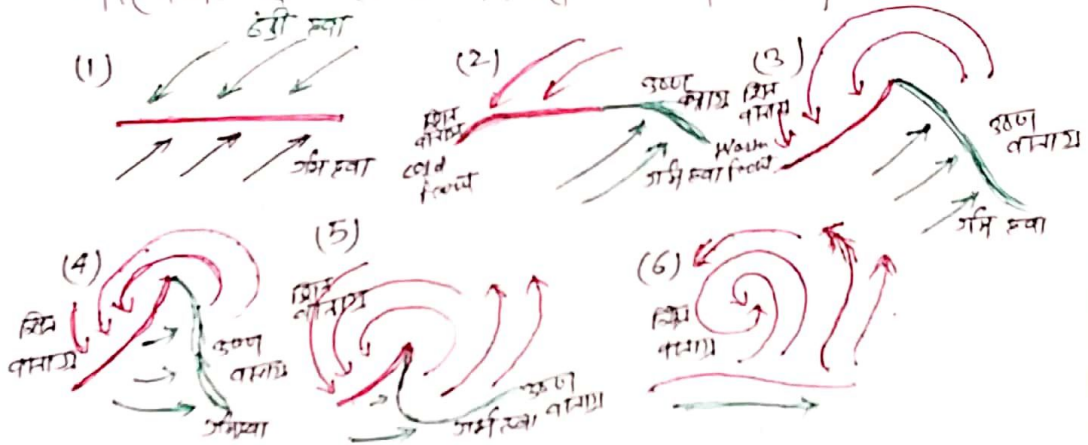 ठंडी हवा
(1)
गर्म हवा
(2)
शित
वाताग्र
cold
front
उष्ण
वाताग्र
Warm
front
गर्म हवा
(3)
शित
वाताग्र
उष्ण
वाताग्र
गर्म हवा
(4)
शित
वाताग्र
उष्ण
वाताग्र
गर्म हवा
(5)
शित
वाताग्र
उष्ण
वाताग्र
गर्म हवा
(6)
शित
वाताग्र